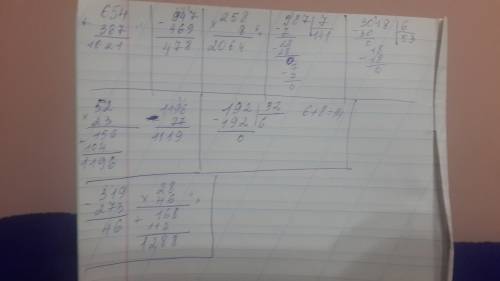 654
387
1041
- 947
469
478
× 258
8
2064
987 | 7
- 7 | 141
28
- 28
0
7
- 7
0
3018 | 6
- 30
0
18
- 18
0
× 52
23
156
104
1196
- 1196
77
1119
192 | 32
- 192 | 6
0
6+8=14
- 319
273
46
28
× 46
+ 168
112
1288